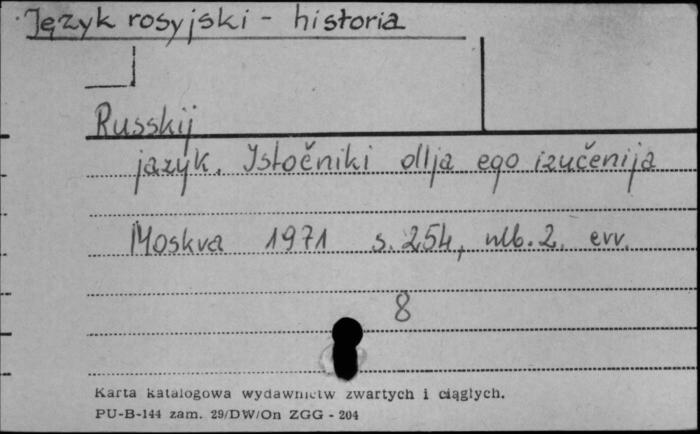 Język rosyjski - historia
Russkij
jazyk. Istočniki dlja ego izučenija
Moskva 1971 s. 254, nlb. 2. err.
8
Karta katalogowa wydawnictw zwartych i ciągłych.
PU-B-144 zam. 29/DW/On ZGG - 204